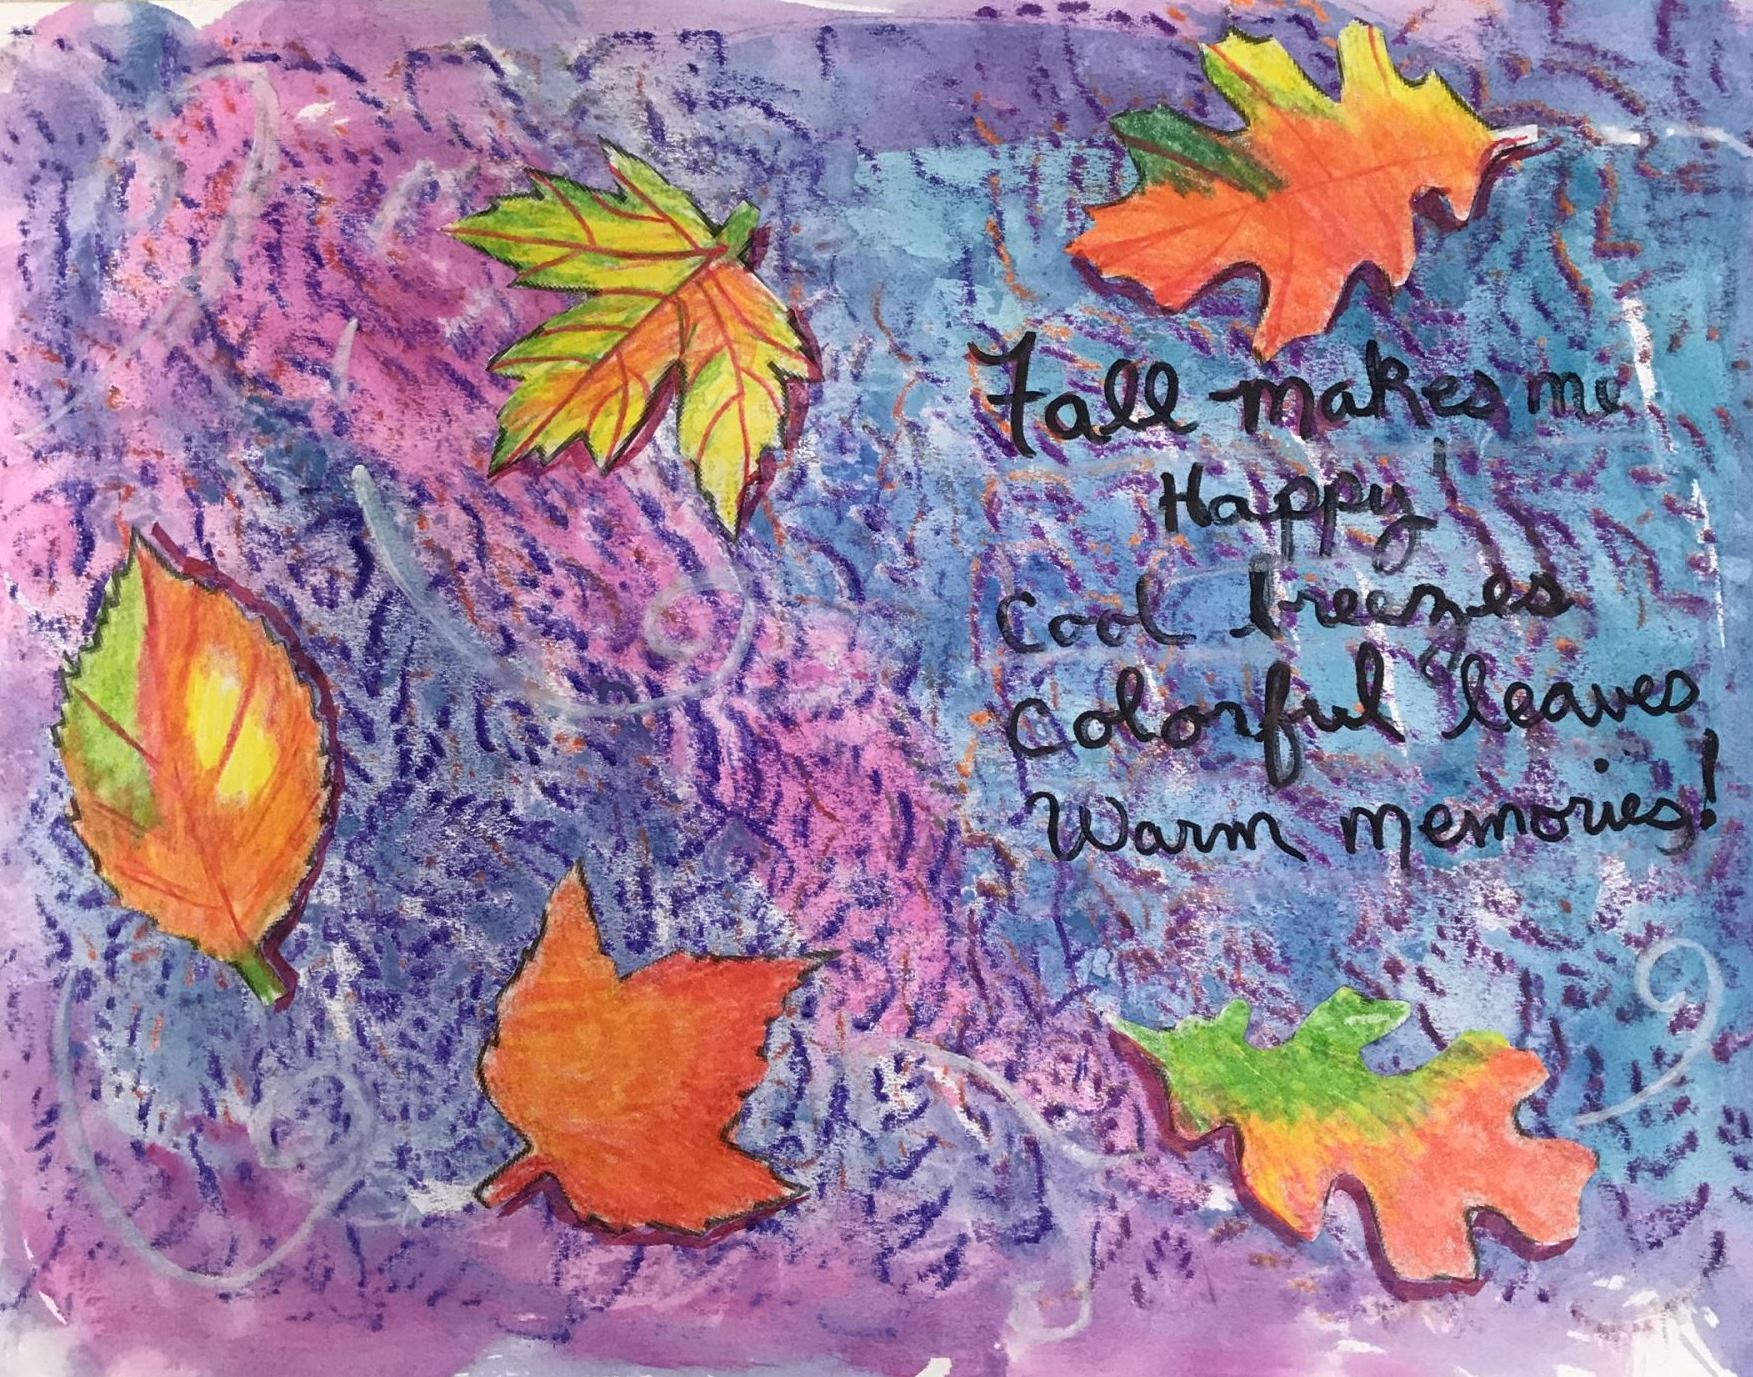 Fall makes me
Happy
Cool breezes
Colorful leaves
Warm memories!